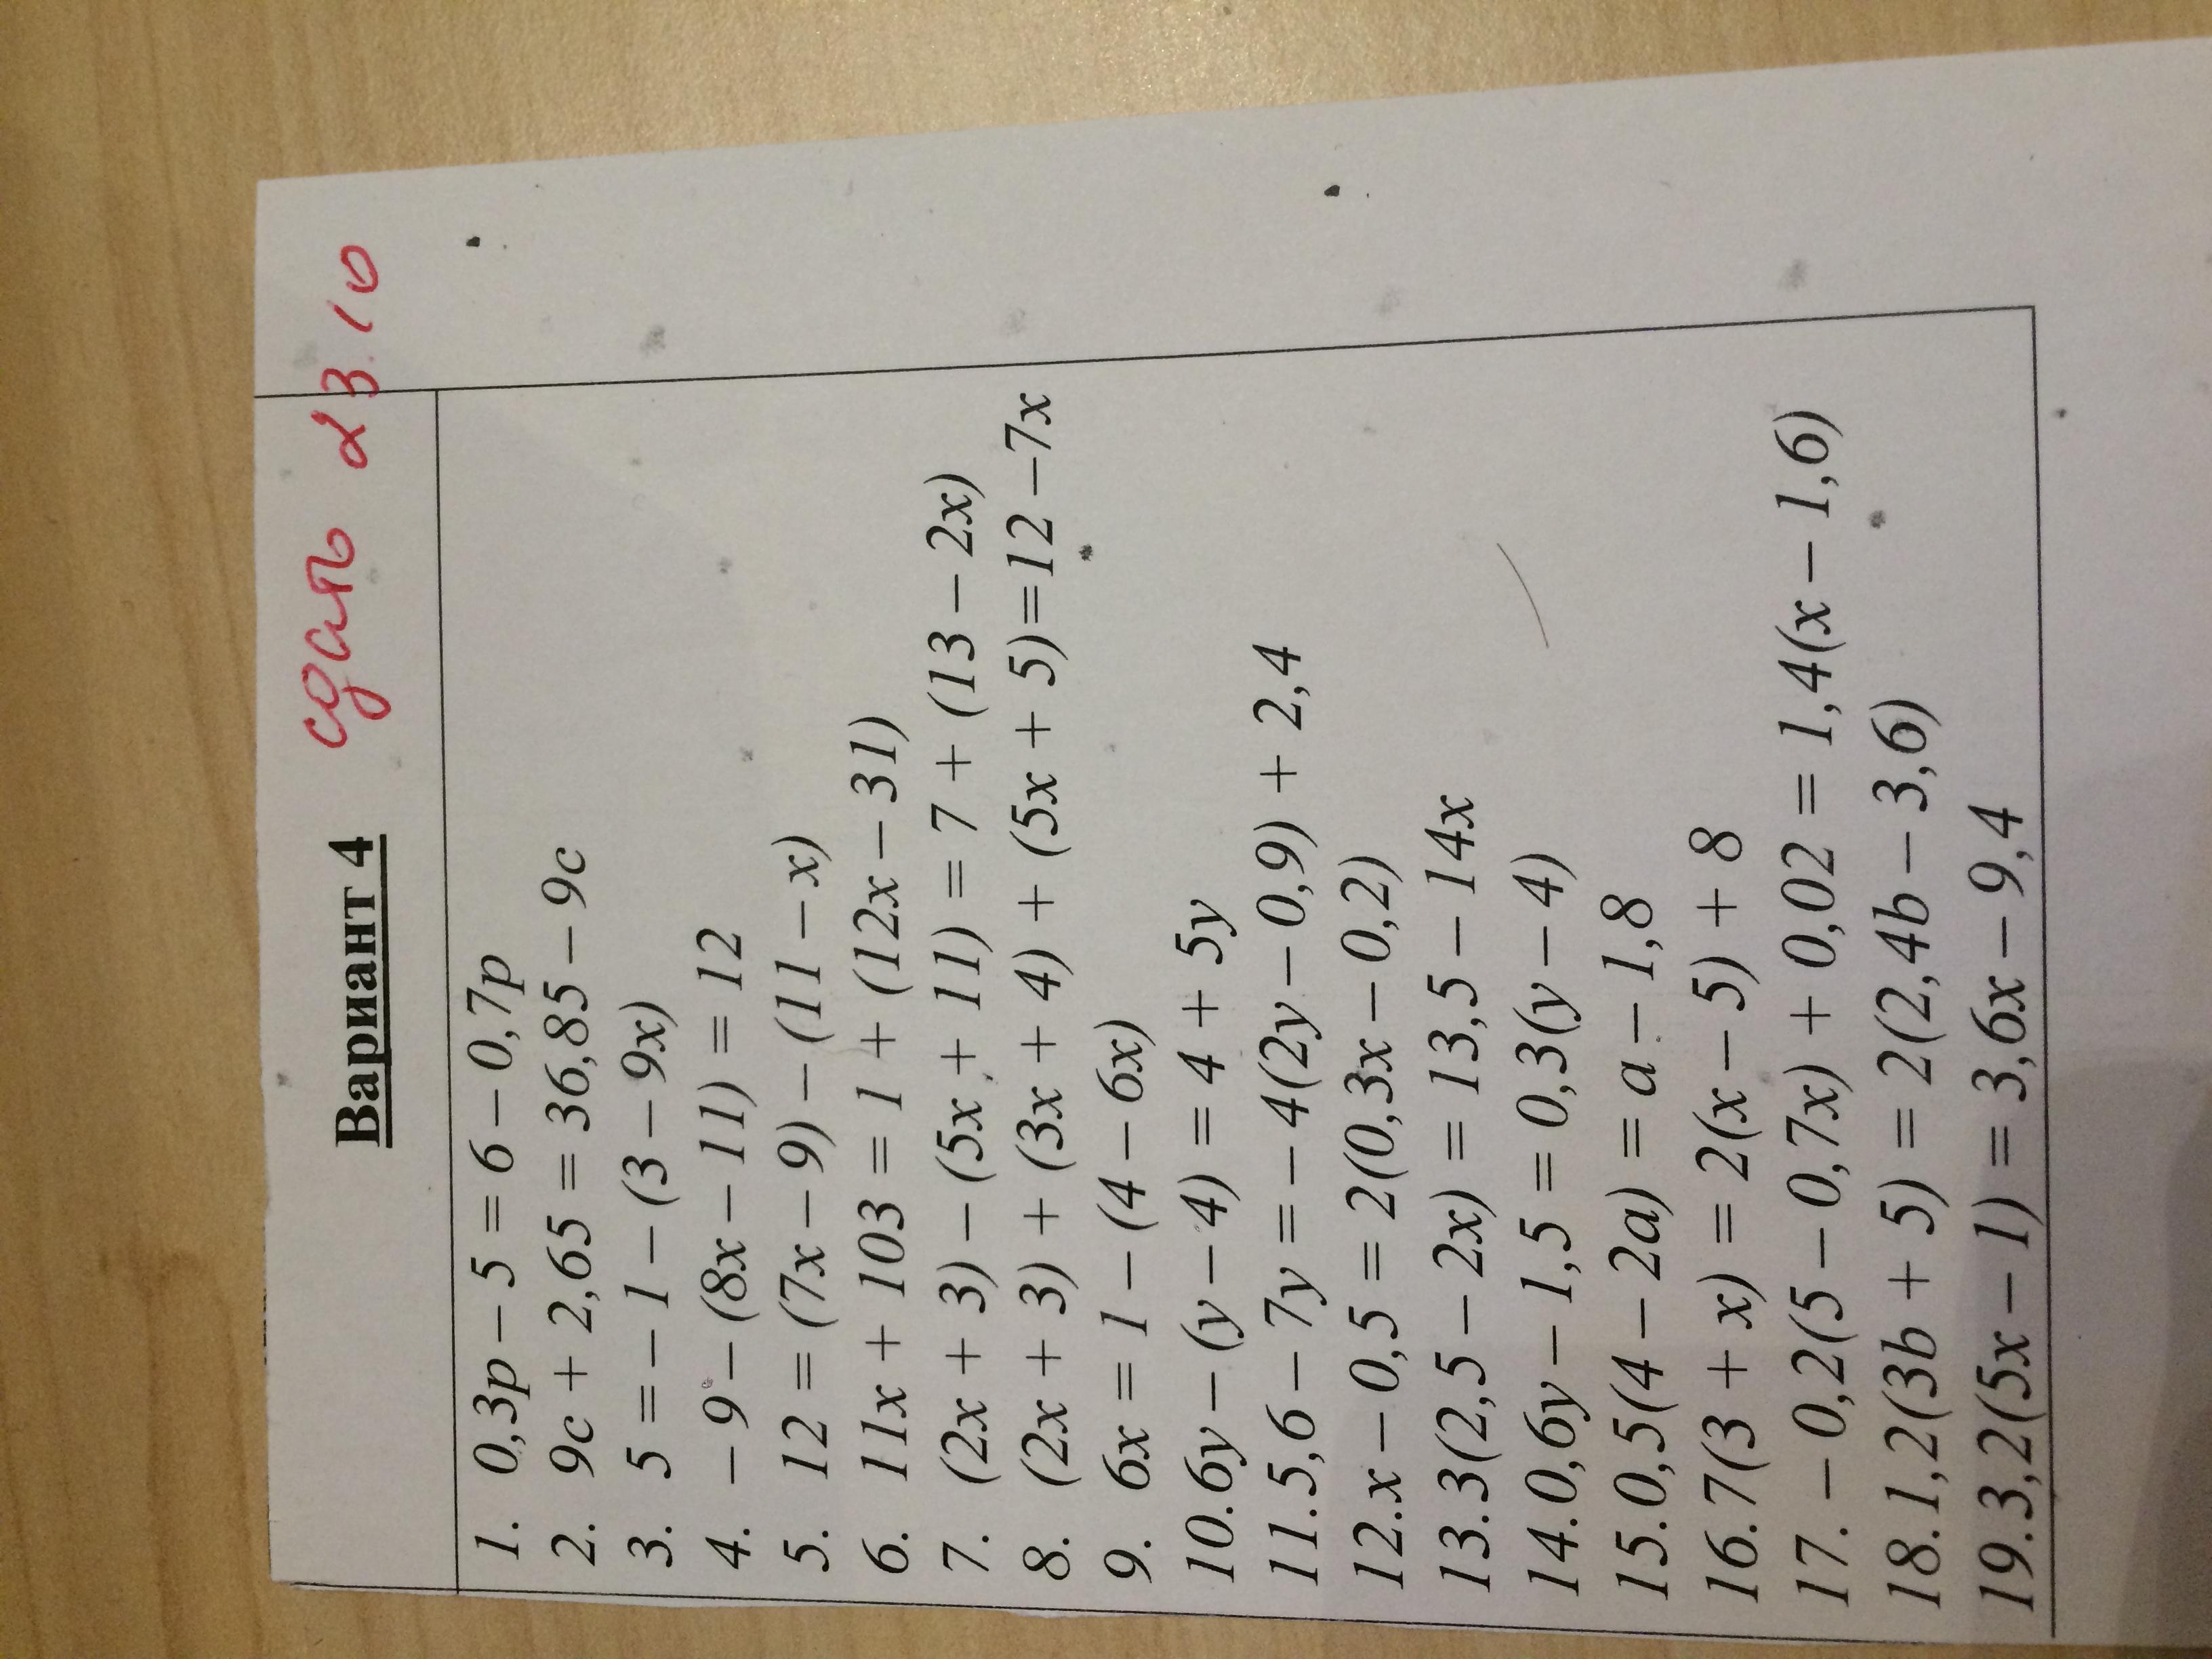 Вариант 4 сдать 23.10
1. 0,3p – 5 = 6 – 0,7p
2. 9c + 2,65 = 36,85 – 9c
3. 5 = – 1 – (3 – 9x)
4. – 9 – (8x – 11) = 12
5. 12 = (7x – 9) – (11 – x)
6. 11x + 103 = 1 + (12x – 31)
7. (2x + 3) – (5x + 11) = 7 + (13 – 2x)
8. (2x + 3) + (3x + 4) + (5x + 5)=12 –7x
9. 6x = 1 – (4 – 6x)
10.6y – (y – 4) = 4 + 5y
11.5,6 – 7y = – 4(2y – 0,9) + 2,4
12.x – 0,5 = 2(0,3x – 0,2)
13.3(2,5 – 2x) = 13,5 – 14x
14.0,6y – 1,5 = 0,3(y – 4)
15.0,5(4 – 2a) = a – 1,8
16.7(3 + x) = 2(x – 5) + 8
17. – 0,2(5 – 0,7x) + 0,02 = 1,4(x – 1,6)
18.1,2(3b + 5) = 2(2,4b – 3,6)
19.3,2(5x – 1) = 3,6x – 9,4